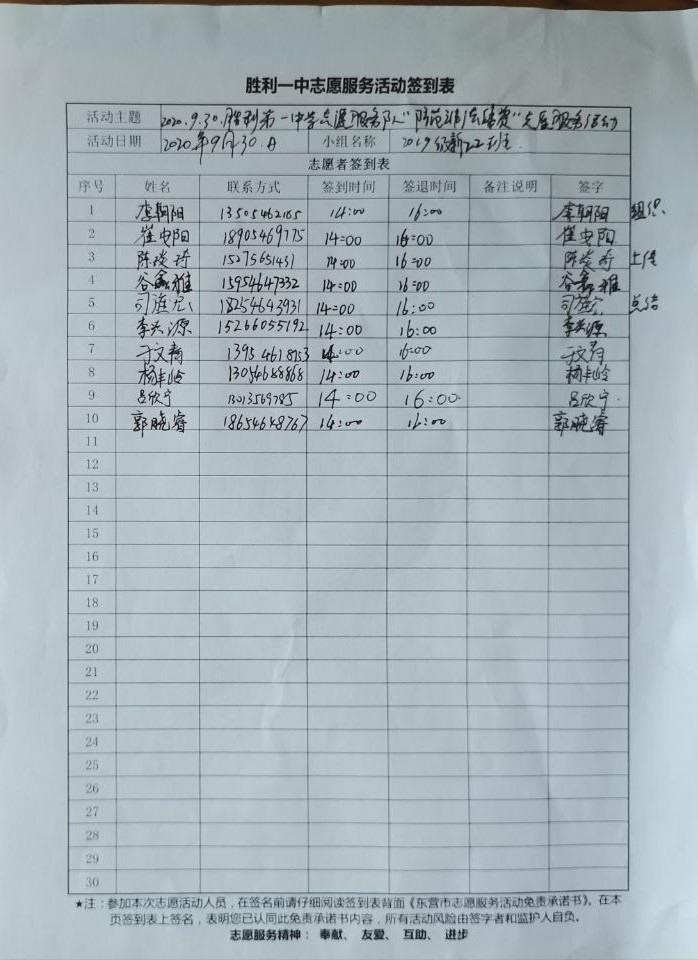 胜利一中志愿服务活动签到表
活动主题 2020.9.30.胜利第一中学志愿服务队"防范非法集资"志愿服务活动
活动日期 2020年9月30日 小组名称 2019级新22班
志愿者签到表
序号 姓名 联系方式 签到时间 签退时间 备注说明 签字
1 李朝阳 13505462165 14:00 16:00 李朝阳 组织
2 崔安阳 18905469775 14:00 16:00 崔安阳
3 15275651431 14:00 16:00 上传
4 谷鑫雅 15954647332 14:00 16:00 谷鑫雅
5 18254643931 14:00 16:00 总结
6 李兴源 15266055192 14:00 16:00 李兴源
7 于文静 14:00 16:00 于文静
8 杨丰岭 14:00 16:00 杨丰岭
9 吕欣宁 14:00 16:00 吕欣宁
10 郭晓睿 18654648767 14:00 16:00 郭晓睿
11
12
13
14
15
16
17
18
19
20
21
22
23
24
25
26
27
28
29
30
★注：参加本次志愿活动人员，在签名前请仔细阅读签到表背面《东营市志愿服务活动免责承诺书》。在本
页签到表上签名，表明您已认同此免责承诺书内容，所有活动风险由签字者和监护人自负。
志愿服务精神： 奉献、 友爱、 互助、 进步